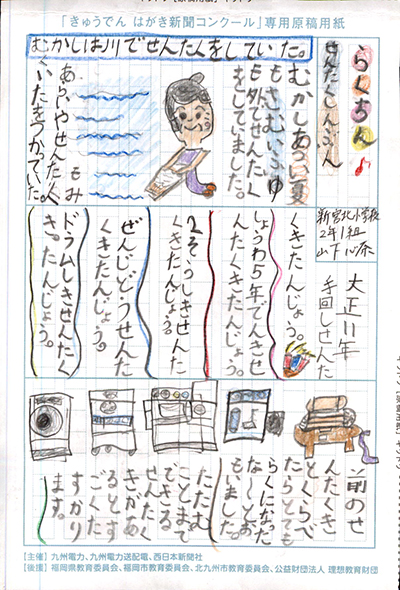 「きゅうでん はがき新聞コンクール」専用原稿用紙
らくちん♪
せんたくしんぶん
新宮北小学校
2年1組
山下
むかしは川でせんたくをしていた。
むかしあつい夏
もさむいふゆ
も外でせんたく
をしていました。
もみ
あらいやせんた
くいたをつかっていた。
大正11年
手回しせんた
くきたんじょう。
しょうわ5年でんきせ
んたくきたんじょう。
2そうしきせんた
くきたんじょう。
ぜんじどうせんた
くきたんじょう。
ドラムしきせんたく
きたんじょう。
前のせ
んたくき
とくらべ
たらとても
らくになった
な〜とお
もいました。
たたむ
ことまで
できる
せんたく
きがあ
るとす
ごくた
すかり
ます。
【主催】九州電力、九州電力送配電、西日本新聞社
【後援】福岡県教育委員会、福岡市教育委員会、北九州市教育委員会、公益財団法人 理想教育財団